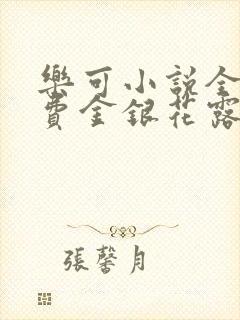 樂可小說全
費金銀花露
張馨月